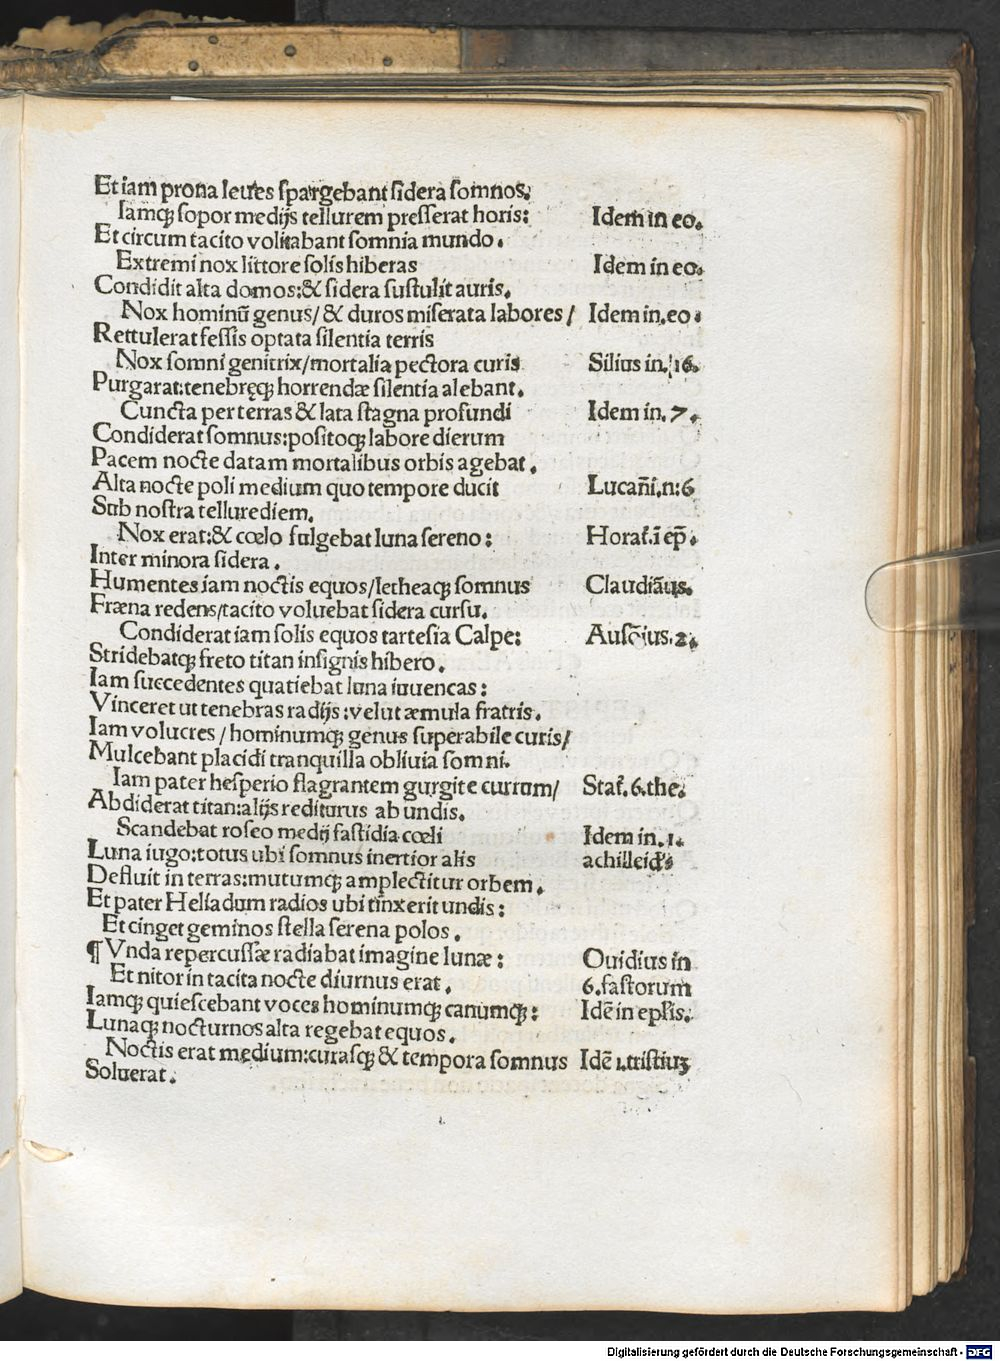 Et iam prona leues spargebant sidera somnos.
Iamqꝫ sopor medijs tellurem presserat horis: Idem in eo.
Et circum tacito volitabant somnia mundo.
Extremi nox littore solis hiberas Idem in eo.
Condidit alta domos:& sidera sustulit auris.
Nox hominũ genus/ & duros miserata labores / Idem in.eo.
Rettulerat fessis optata silentia terris
Nox somni genitrix/mortalia pectora curis Silius in.16.
Purgarat:tenebręqꝫ horrendæ silentia alebant.
Cuncta per terras & lata stagna profundi Idem in.7.
Condiderat somnus:positoqꝫ labore dierum
Pacem nocte datam mortalibus orbis agebat.
Alta nocte poli medium quo tempore ducit Lucañi.n:6
Sub nostra tellurediem.
Nox erat:& cœlo fulgebat luna sereno: Horat̃.ĩ ep̃.
Inter minora sidera.
Humentes iam noctis equos/letheaqꝫ somnus Claudiãus.
Fræna redens/tacito voluebat sidera cursu.
Condiderat iam solis equos tartesia Calpe: Ausõius.2.
Stridebatqꝫ freto titan insignis hibero.
Iam succedentes quatiebat luna iuuencas:
Vinceret ut tenebras radijs:velut æmula fratris.
Iam volucres / hominumqꝫ genus superabile curis/
Mulcebant placidi tranquilla obliuia somni.
Iam pater hesperio flagrantem gurgite currum/ Stat̃.6.the.
Abdiderat titan:alijs rediturus ab undis.
Scandebat roseo medij fastidia cœli Idem in.1.
Luna iugo:totus ubi somnus inertior alis achilleid̃.
Defluit in terras:mutumqꝫ amplectitur orbem.
Et pater Heliadum radios ubi tinxerit undis:
Et cinget geminos stella serena polos.
¶ Vnda repercussæ radiabat imagine lunæ: Ouidius in
Et nitor in tacita nocte diurnus erat. 6.fastorum
Iamqꝫ quiescebant voces hominumqꝫ canumqꝫ: Idẽ in epl̃is.
Lunaqꝫ nocturnos alta regebat equos.
Noctis erat medium:curasqꝫ & tempora somnus Idẽ 1.tristiuꝫ
Soluerat.
Digitalisierung gefördert durch die Deutsche Forschungsgemeinschaft - DFG